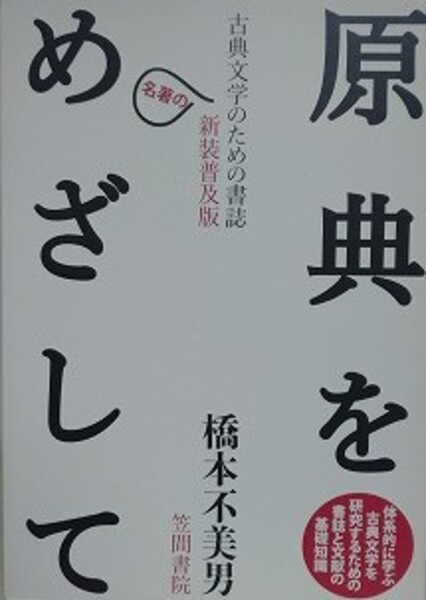 原典を
めざして
古典文学のための書誌
名著の
新装普及版
橋本不美男
笠間書院
体系的に学ぶ
古典文学を
研究するための
書誌と文献の
基礎知識